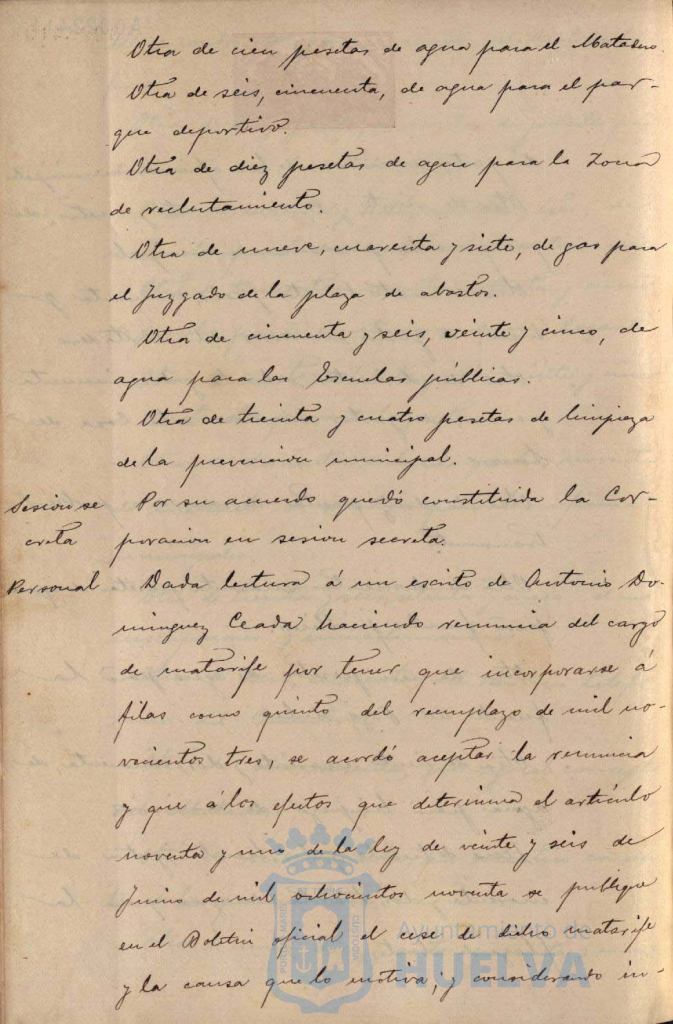 Otra de cien pesetas de agua para el Matadero.
Otra de seis, cincuenta, de agua para el par-
que deportivo.
Otra de diez pesetas de agua para la Zona
de reclutamiento.
Otra de nueve, cuarenta y siete, de gas para
el Juzgado de la plaza de abastos.
Otra de cincuenta y seis, veinte y cinco, de
agua para las Escuelas públicas.
Otra de treinta y cuatro pesetas de limpieza
de la prevencion municipal.
Sesion se
creta
Por su acuerdo quedó constituida la Cor-
poracion en sesion secreta.
Personal
Dada lectura á un escrito de Antonio Do-
minguez Ceada haciendo renuncia del cargo
de matarife por tener que incorporarse á
filas como quinto del reemplazo de mil no-
vecientos tres, se acordó aceptar la renuncia
y que á los efectos que determina el artículo
noventa y uno de la ley de veinte y seis de
Junio de mil ochocientos noventa se publique
en el Boletin oficial el cese de dicho matarife
y la causa que lo motiva; y considerando in-
Ayuntamiento de
HUELVA